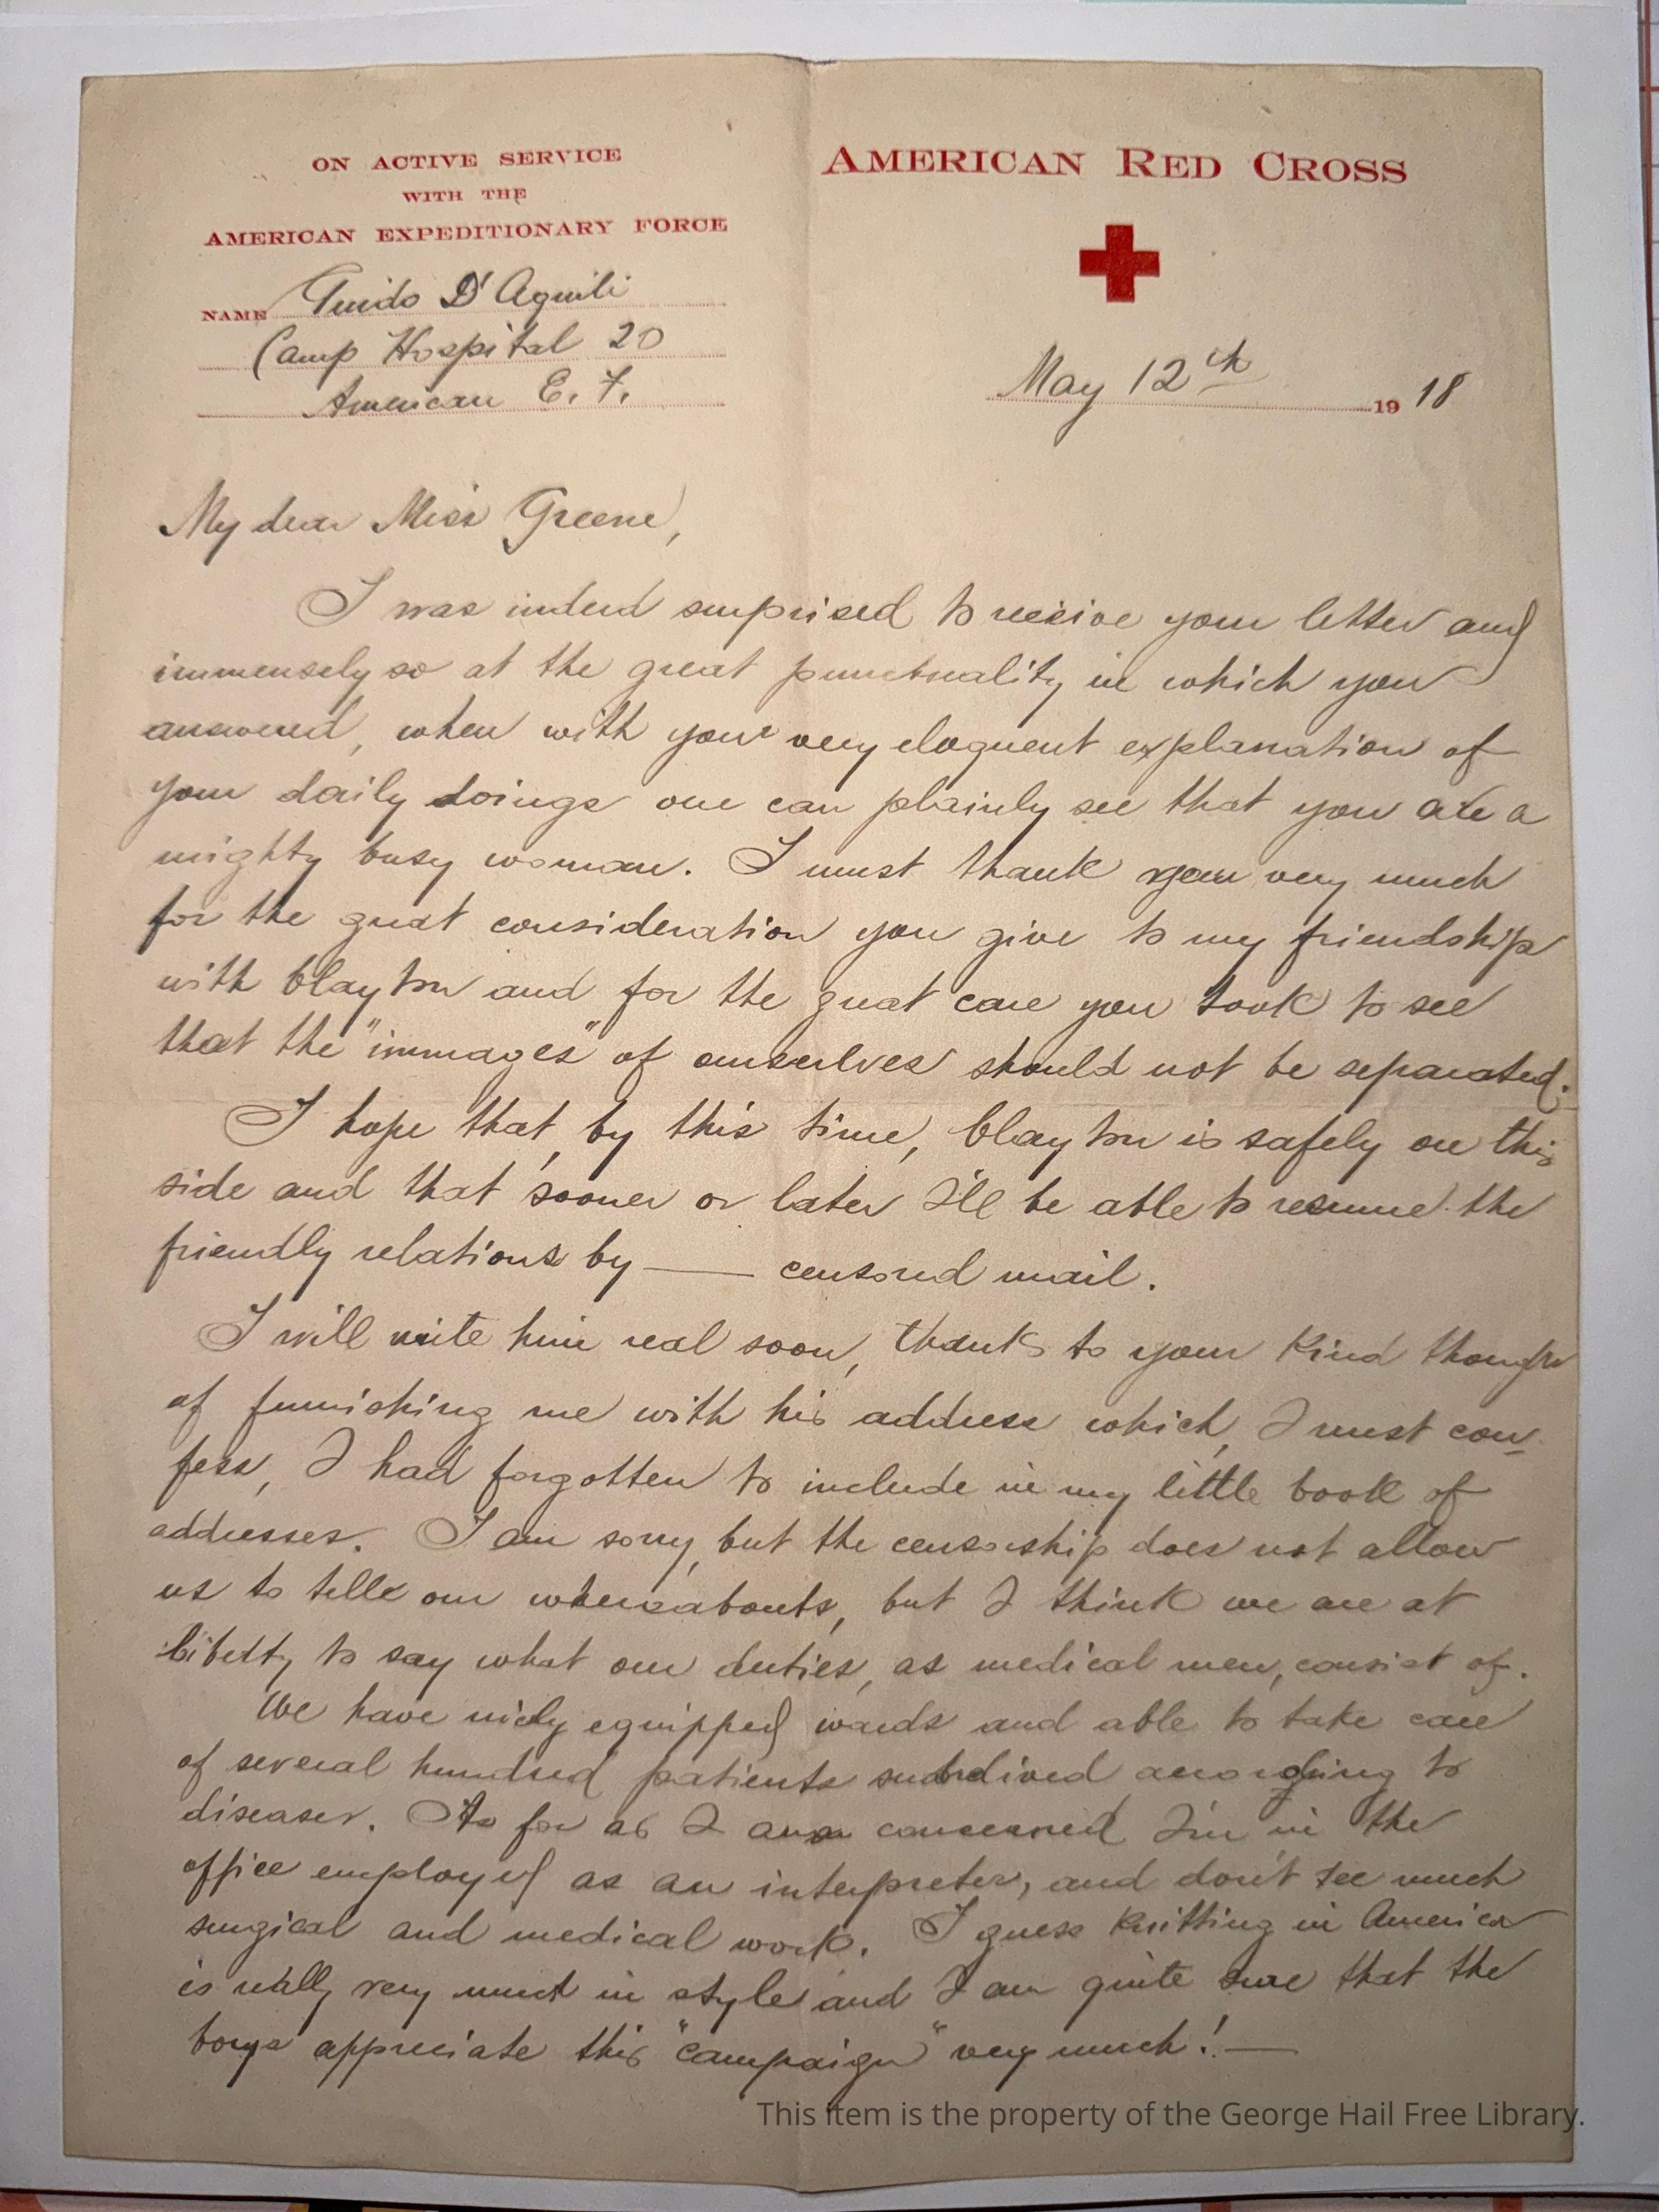 ON ACTIVE SERVICE
WITH THE
AMERICAN EXPEDITIONARY FORCE
NAME Guido D'Aquili
Camp Hospital 20
American E. F.
AMERICAN RED CROSS
May 12th 1918
My dear Miss Greene,
I was indeed surprised to receive your letter and
immensely so at the great punctuality in which you
answered, when with your very eloquent explanation of
your daily doings one can plainly see that you are a
mighty busy woman. I must thank you very much
for the great consideration you give to my friendship
with Clayton and for the great care you took to see
that the "immages" of ourselves should not be separated.
I hope that, by this time, Clayton is safely on this
side and that sooner or later I'll be able to resume the
friendly relations by —— censored mail.
I will write him real soon, thanks to your kind thought
of furnishing me with his address which, I must con-
fess, I had forgotten to include in my little book of
addresses. I am sorry, but the censorship does not allow
us to tell our whereabouts, but I think we are at
liberty to say what our duties, as medical men, consist of.
We have nicely equipped wards and able to take care
of several hundred patients subdivied according to
diseases. As for as I am concerned I'm in the
office employed as an interpreter, and don't see much
surgical and medical work. I guess knitting in America
is really very much in style and I am quite sure that the
boys appreciate this "campaign" very much! —
This item is the property of the George Hail Free Library.